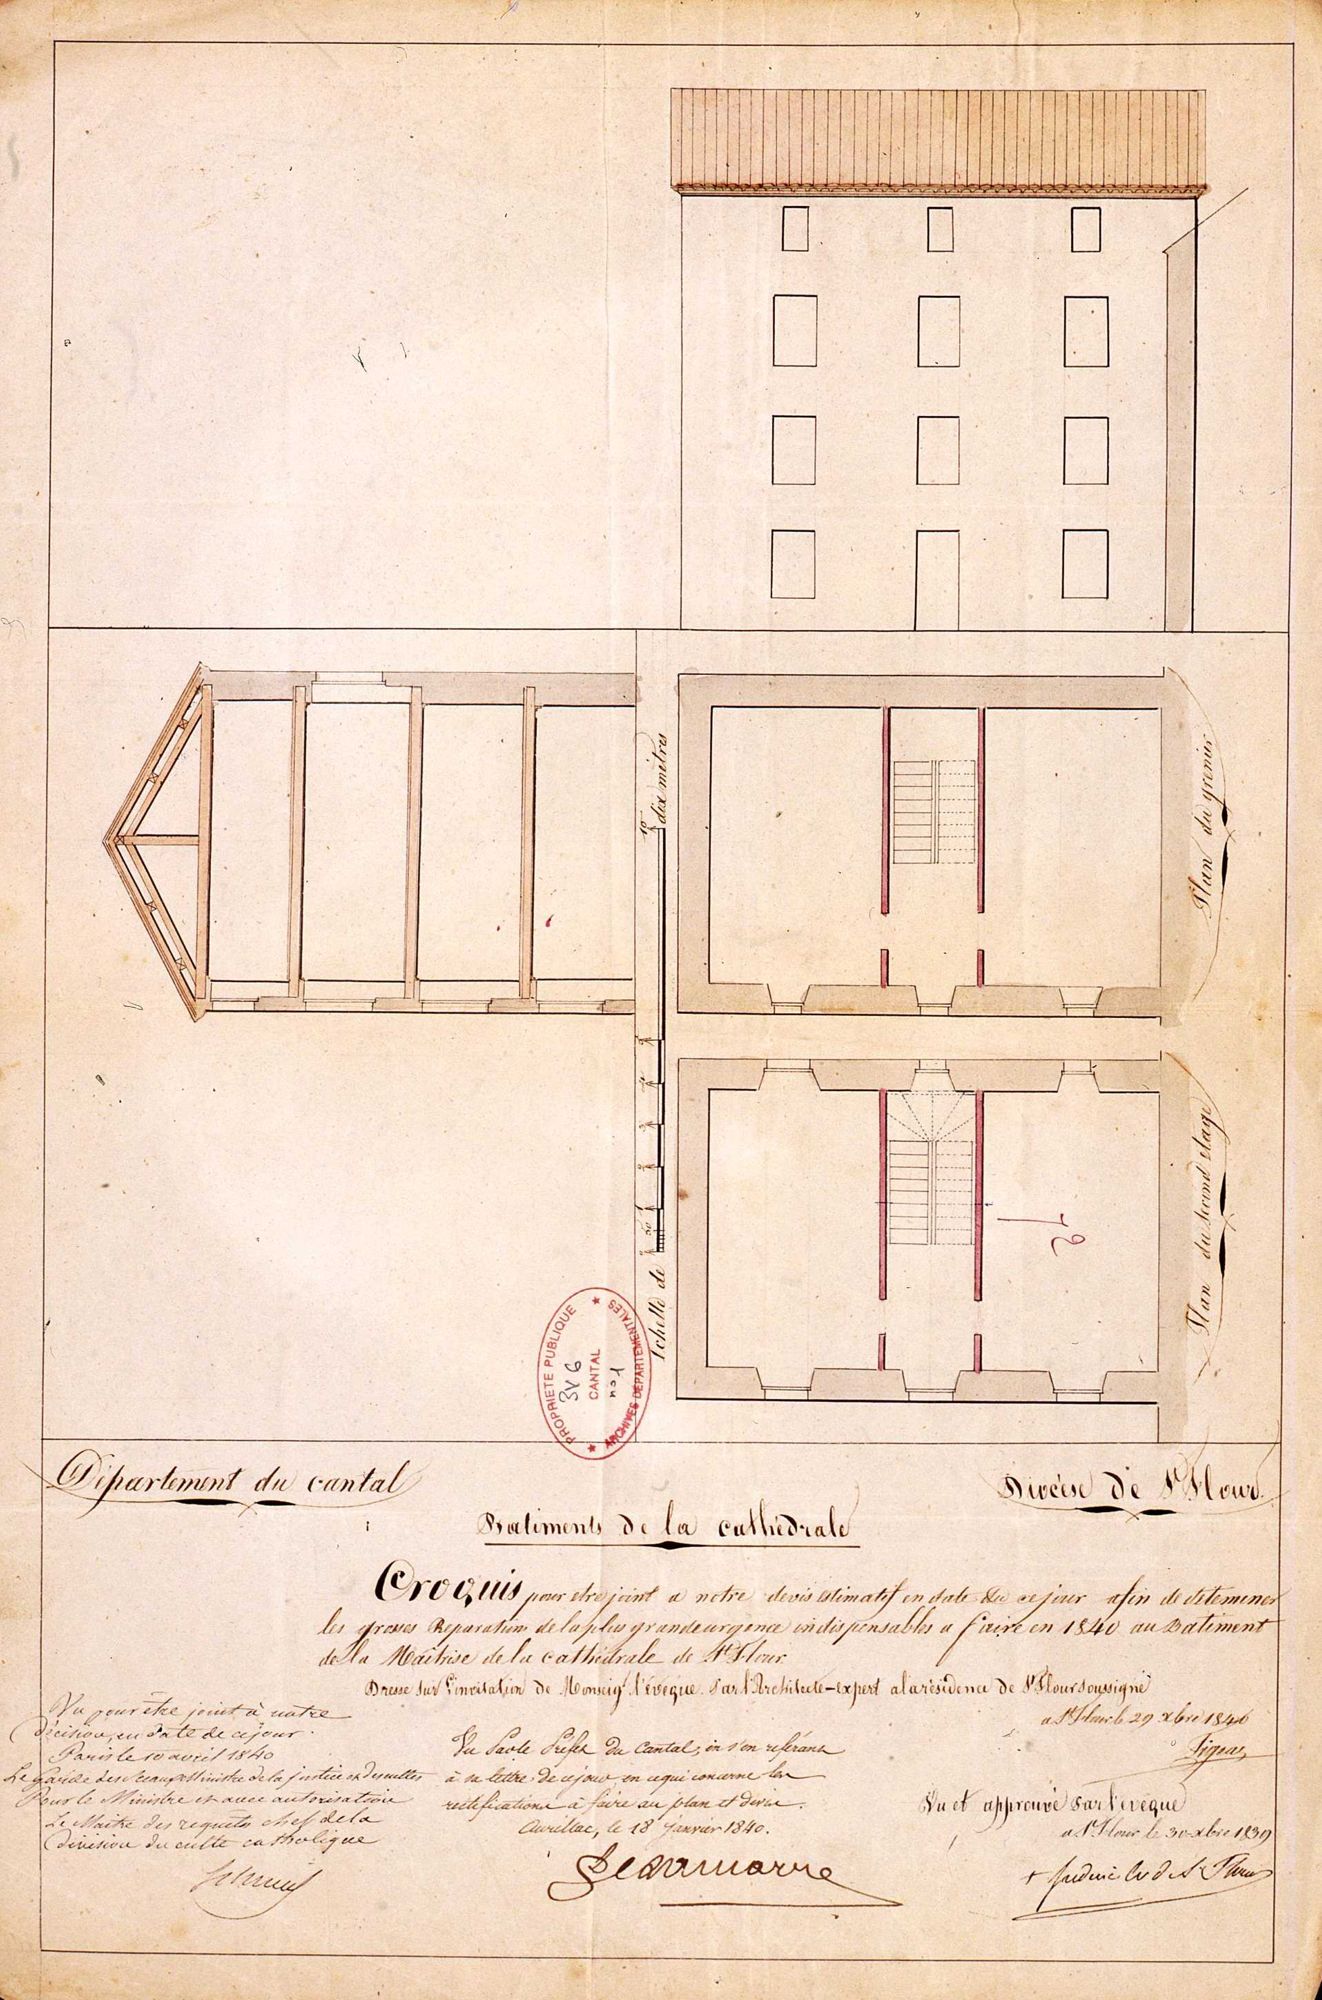 dix mètres
10
Echelle de
Plan du grenier
Plan du second étage
PROPRIETE PUBLIQUE
3V6
CANTAL
no 1
ARCHIVES DEPARTEMENTALES
Département du cantal
Diocèse de St Flour.
Batiments de la cathédrale
Croquis pour etre joint a notre devis estimatif en date de ce jour afin de déterminer
les grosses Réparations de la plus grande urgence indispensables a faire en 1840 au Batiment
de la Maîtrise de la cathédrale de St Flour.
Dresse sur l'invitation de Monseigr l'évêque. Par l'Architecte-expert a la résidence de St Flour soussigné
a St Flour le 29 xbre
Vu pour être joint à notre
décision, en date de ce jour.
Paris le 10 avril 1840
Le Garde des Sceaux Ministre de la justice et des cultes
Pour le Ministre et avec autorisation
Le Maître des requêtes chef de la
division du culte catholique
Vu Par le Préfet du Cantal, en s'en référant
à sa lettre de ce jour en ce qui concerne les
rectifications à faire au plan et devis.
Aurillac, le 18 janvier 1840.
Vu et approuvé Par l'evêque
a St Flour le 30 xbre 1839